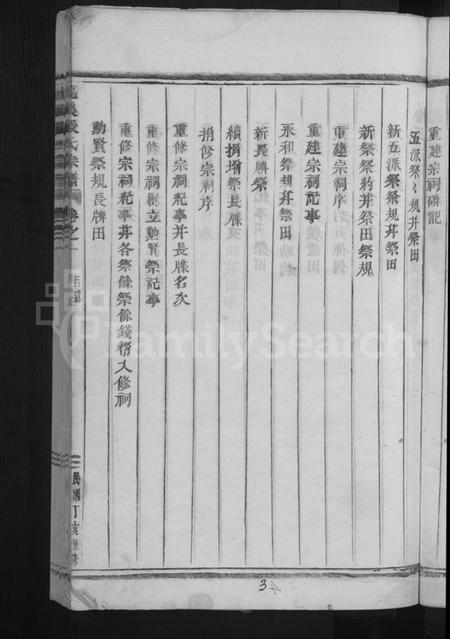 重建宗祠碑記
五派祭祭規并祭田
新五派祭祭規并祭田
新祭祭約并祭田祭規
重建宗祠序
重建宗祠記事
永和祭規并祭田
新長牌祭
續捐增祭長牌
捐修宗祠序
重修宗祠紀事并長牌名次
重修宗祠創立勲賢祭記事
重修宗祠紀事并各祭餘祭餘錢穀入修祠
勲賢祭規長牌田
氏宗譜 卷之一
目錄
民國丁亥重修
3
FamilySearch